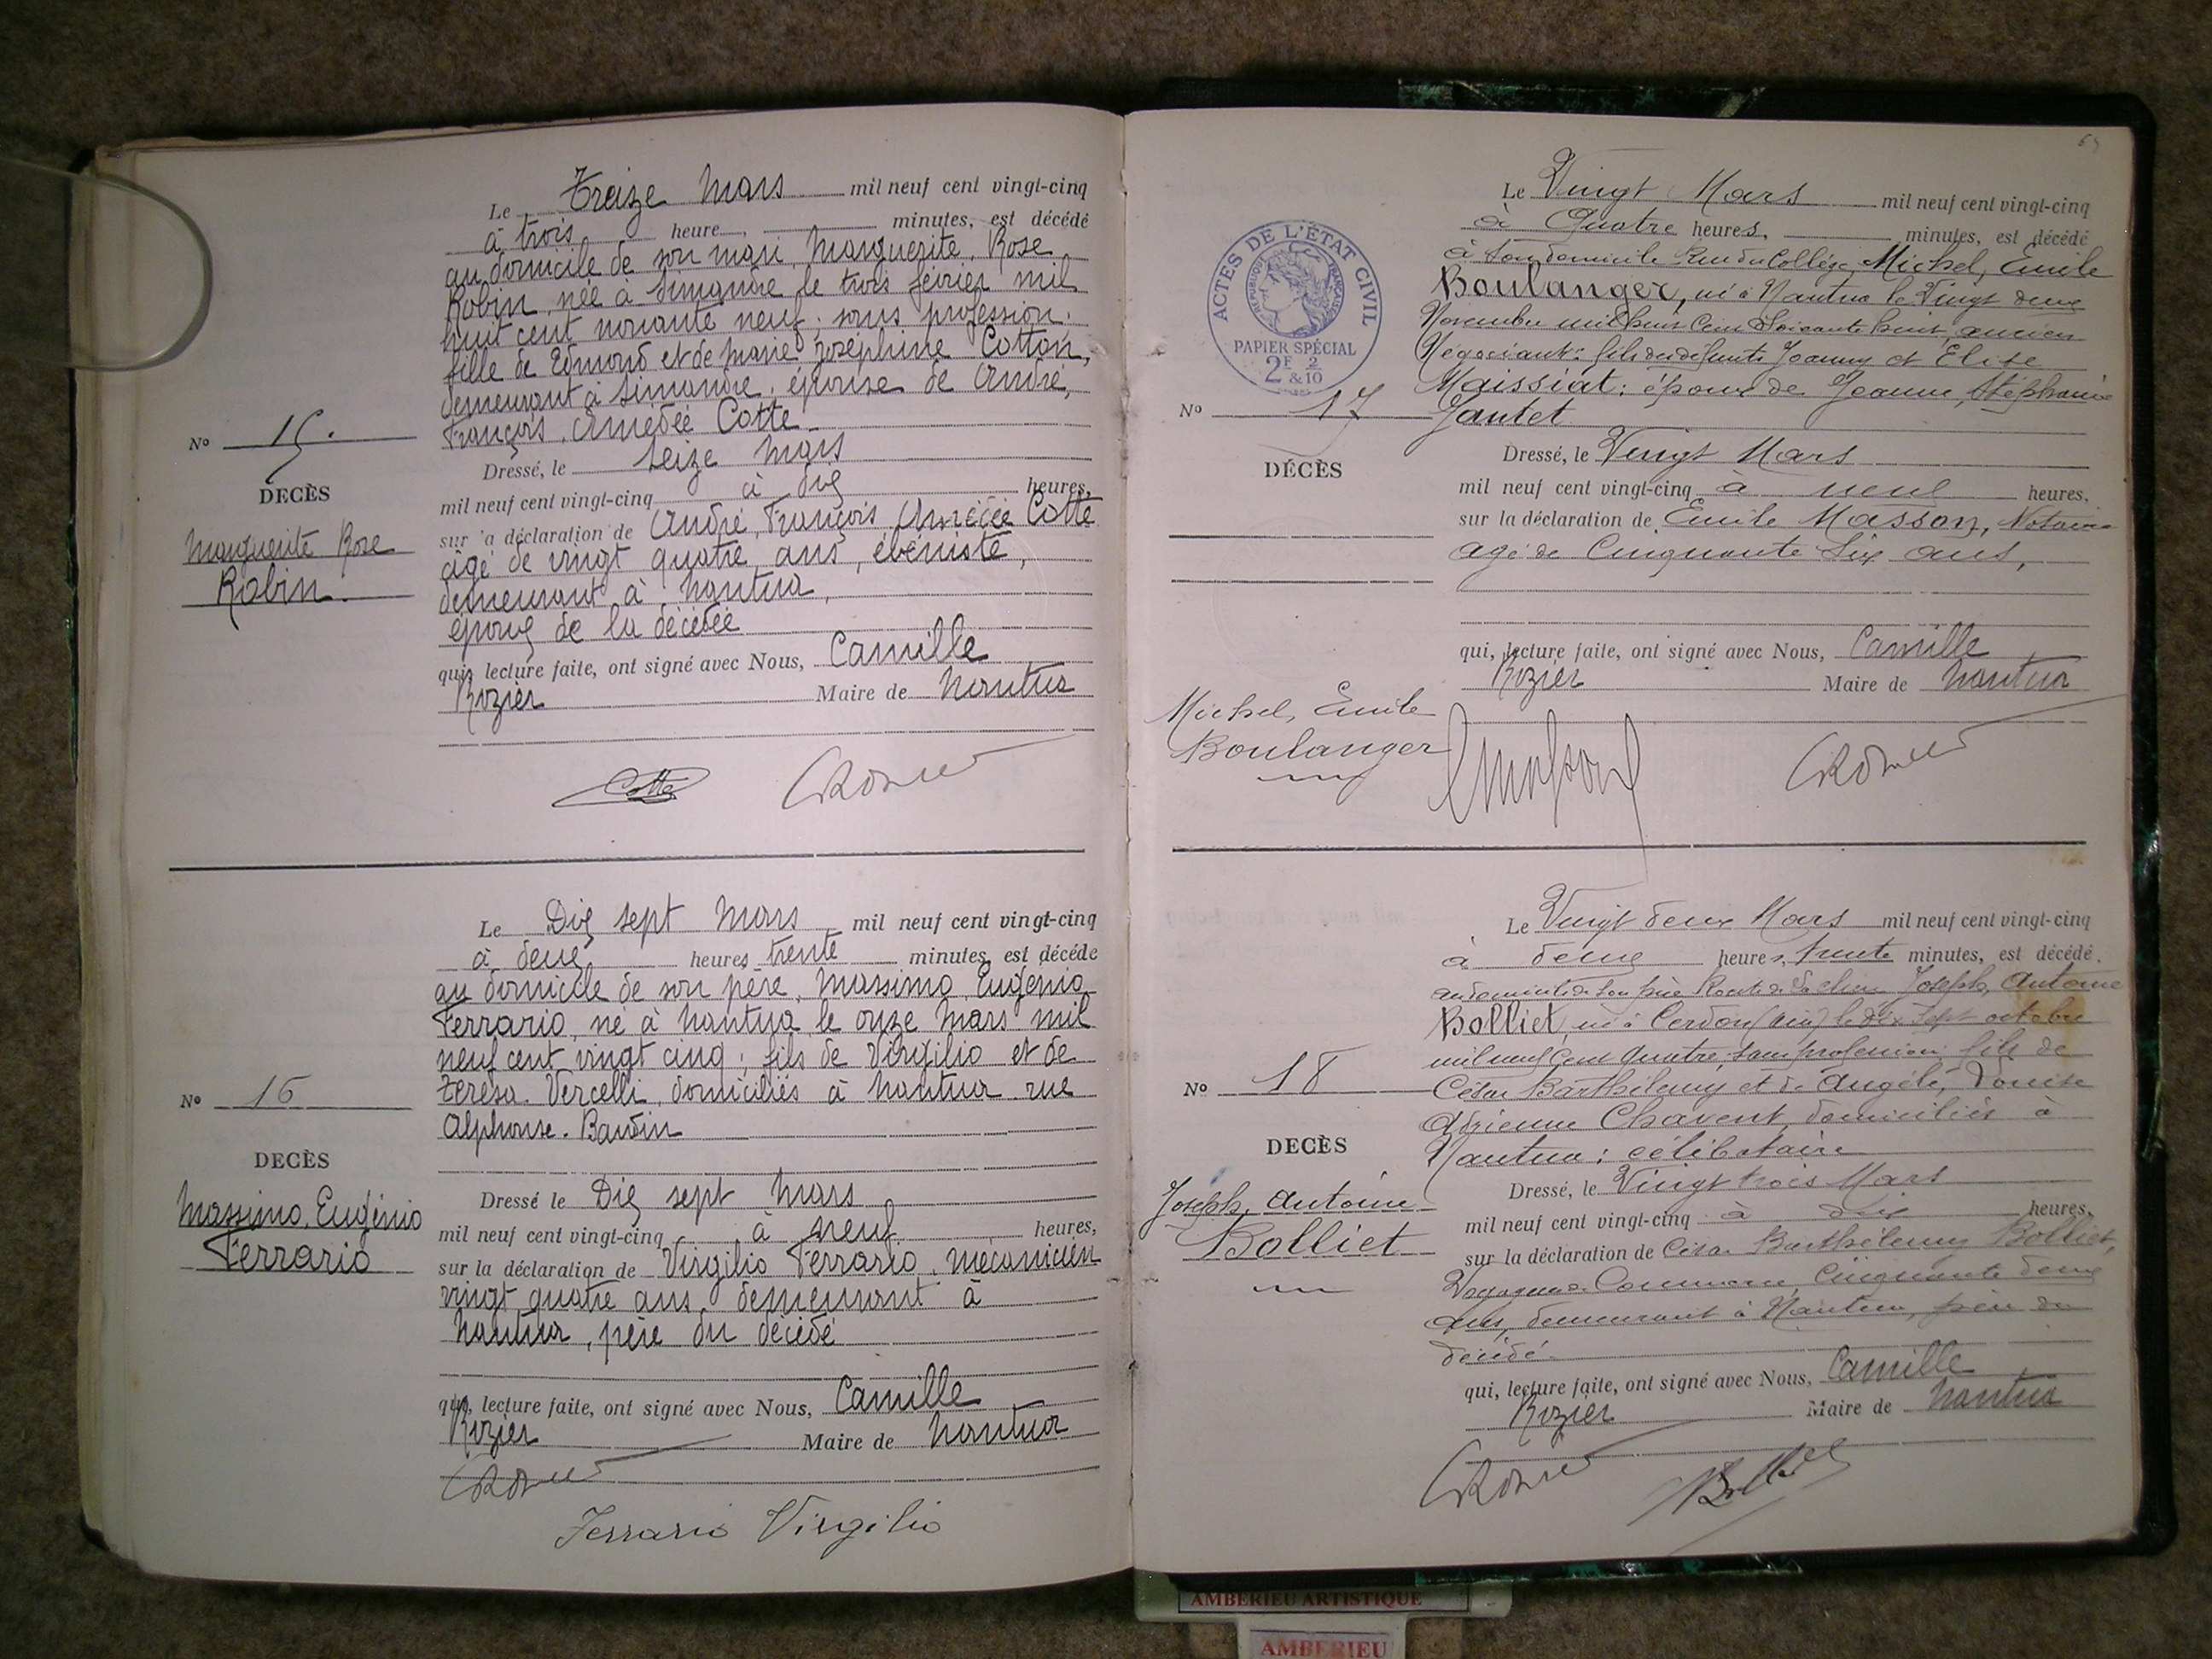 Le Treize Mars mil neuf cent vingt-cinq
à trois heure, minutes, est décédé
au domicile de son mari, Marguerite, Rose
Robin, née à Simandre le trois février mil
huit cent nonante neuf; sans profession.
fille de Edmond et de Marie Joséphine Cotton,
demeurant à Simandre, épouse de André,
François, Amédée Cotte.
No 15.
DECÈS
Marguerite Rose
Robin.
Dressé, le seize Mars
mil neuf cent vingt-cinq à dix heures,
sur la déclaration de André, François Amédée Cotte
âgé de vingt quatre ans, ébéniste,
demeurant à Nantua,
époux de la décédée
qui, lecture faite, ont signé avec Nous, Camille
Rozier Maire de Nantua
Cotte
CRozier
Le Dix sept Mars mil neuf cent vingt-cinq
à deux heures trente minutes, est décéde
au domicile de son père, Massimo, Eugénio
Ferrario, né à Nantua le onze Mars mil
neuf cent vingt cinq; fils de Virgilio et de
Teresa Vercelli, domiciliés à Nantua rue
Alphonse. Baudin
No 16
DECÈS
Massimo, Eugénio
Ferrario
Dressé le Dix sept Mars
mil neuf cent vingt-cinq à neuf heures,
sur la déclaration de Virgilio Ferrario, mécanicien
vingt quatre ans demeurant à
Nantua, père du décédé
qui, lecture faite, ont signé avec Nous, Camille
Rozier Maire de Nantua
CRozier
Ferrario Virgilio
ACTES DE L'ÉTAT CIVIL
RÉPUBLIQUE FRANÇAISE
PAPIER SPÉCIAL
2F 2/10
&10
Le Vingt Mars mil neuf cent vingt-cinq
à Quatre heures, minutes, est décédé
à son domicile Rue du Collége, Michel, Emile
Boulanger, né à Nantua le Vingt deux
Novembre mil huit Cent Soixante huit, ancien
Négociant: fils des défunts Joanny et Elise
Maissiat: époux de Jeanne, Stéphanie
Jantet
No 17
DÉCÈS
Dressé, le Vingt Mars
mil neuf cent vingt-cinq à neuf heures,
sur la déclaration de Emile Masson, Notaire
agé de Cinquante Six ans,
qui, lecture faite, ont signé avec Nous, Camille
Rozier Maire de Nantua
Michel, Emile
Boulanger
EMasson
CRozier
Le Vingt deux Mars mil neuf cent vingt-cinq
à deux heures, trente minutes, est décédé
au domicile de son père Route de Joseph, Antoine
Bolliet, né à Cerdon (Ain) le dix Sept octobre
mil neuf Cent Quatre, sans profession, fils de
César Barthélemy et de Angèle, Louise
Adrienne Chavent, domiciliés à
Nantua; célibataire
No 18
DECÈS
Joseph, Antoine
Bolliet
Dressé, le Vingt trois Mars
mil neuf cent vingt-cinq à dix heures,
sur la déclaration de César Barthélemy Bolliet,
Voyageur de Commerce, Cinquante deux
ans, demeurant à Nantua, père du
décédé.
qui, lecture faite, ont signé avec Nous, Camille
Rozier Maire de Nantua
CRozier
Bolliet
AMBERIEU ARTISTIQUE
AMBERIEU